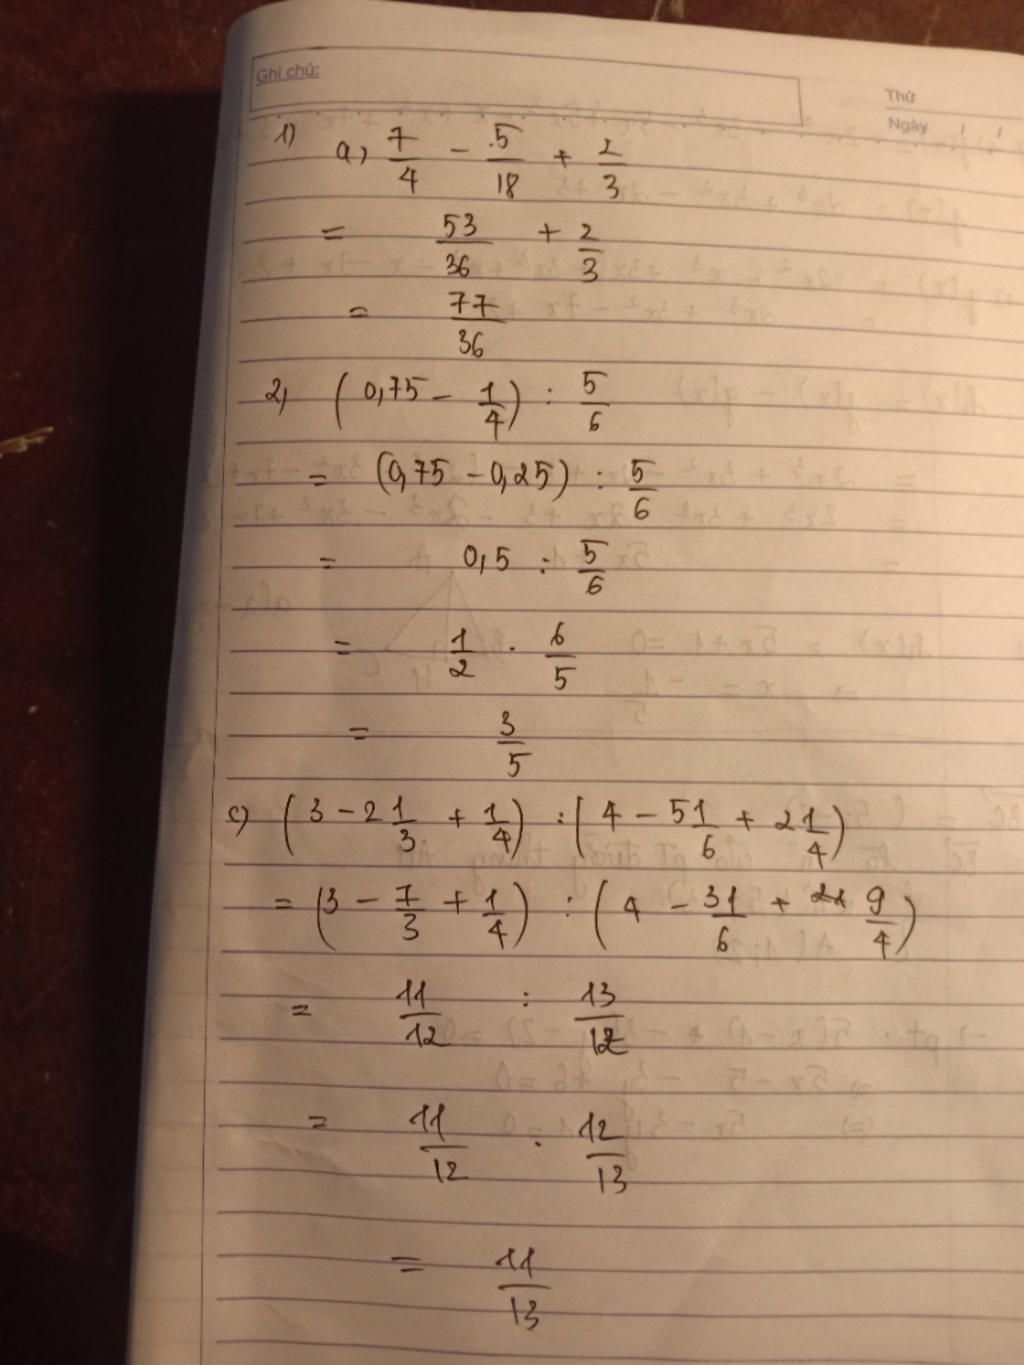 Ghi chú:
Thứ
Ngày / /
1) a, 7/4 - 5/18 + 2/3
= 53/36 + 2/3
= 77/36
2, (0,75 - 1/4) : 5/6
= (0,75 - 0,25) : 5/6
= 0,5 : 5/6
= 1/2 . 6/5
= 3/5
c) (3 - 2 1/3 + 1/4) : (4 - 5 1/6 + 2 1/4)
= (3 - 7/3 + 1/4) : (4 - 31/6 + 9/4)
= 11/12 : 13/12
= 11/12 . 12/13
= 11/13